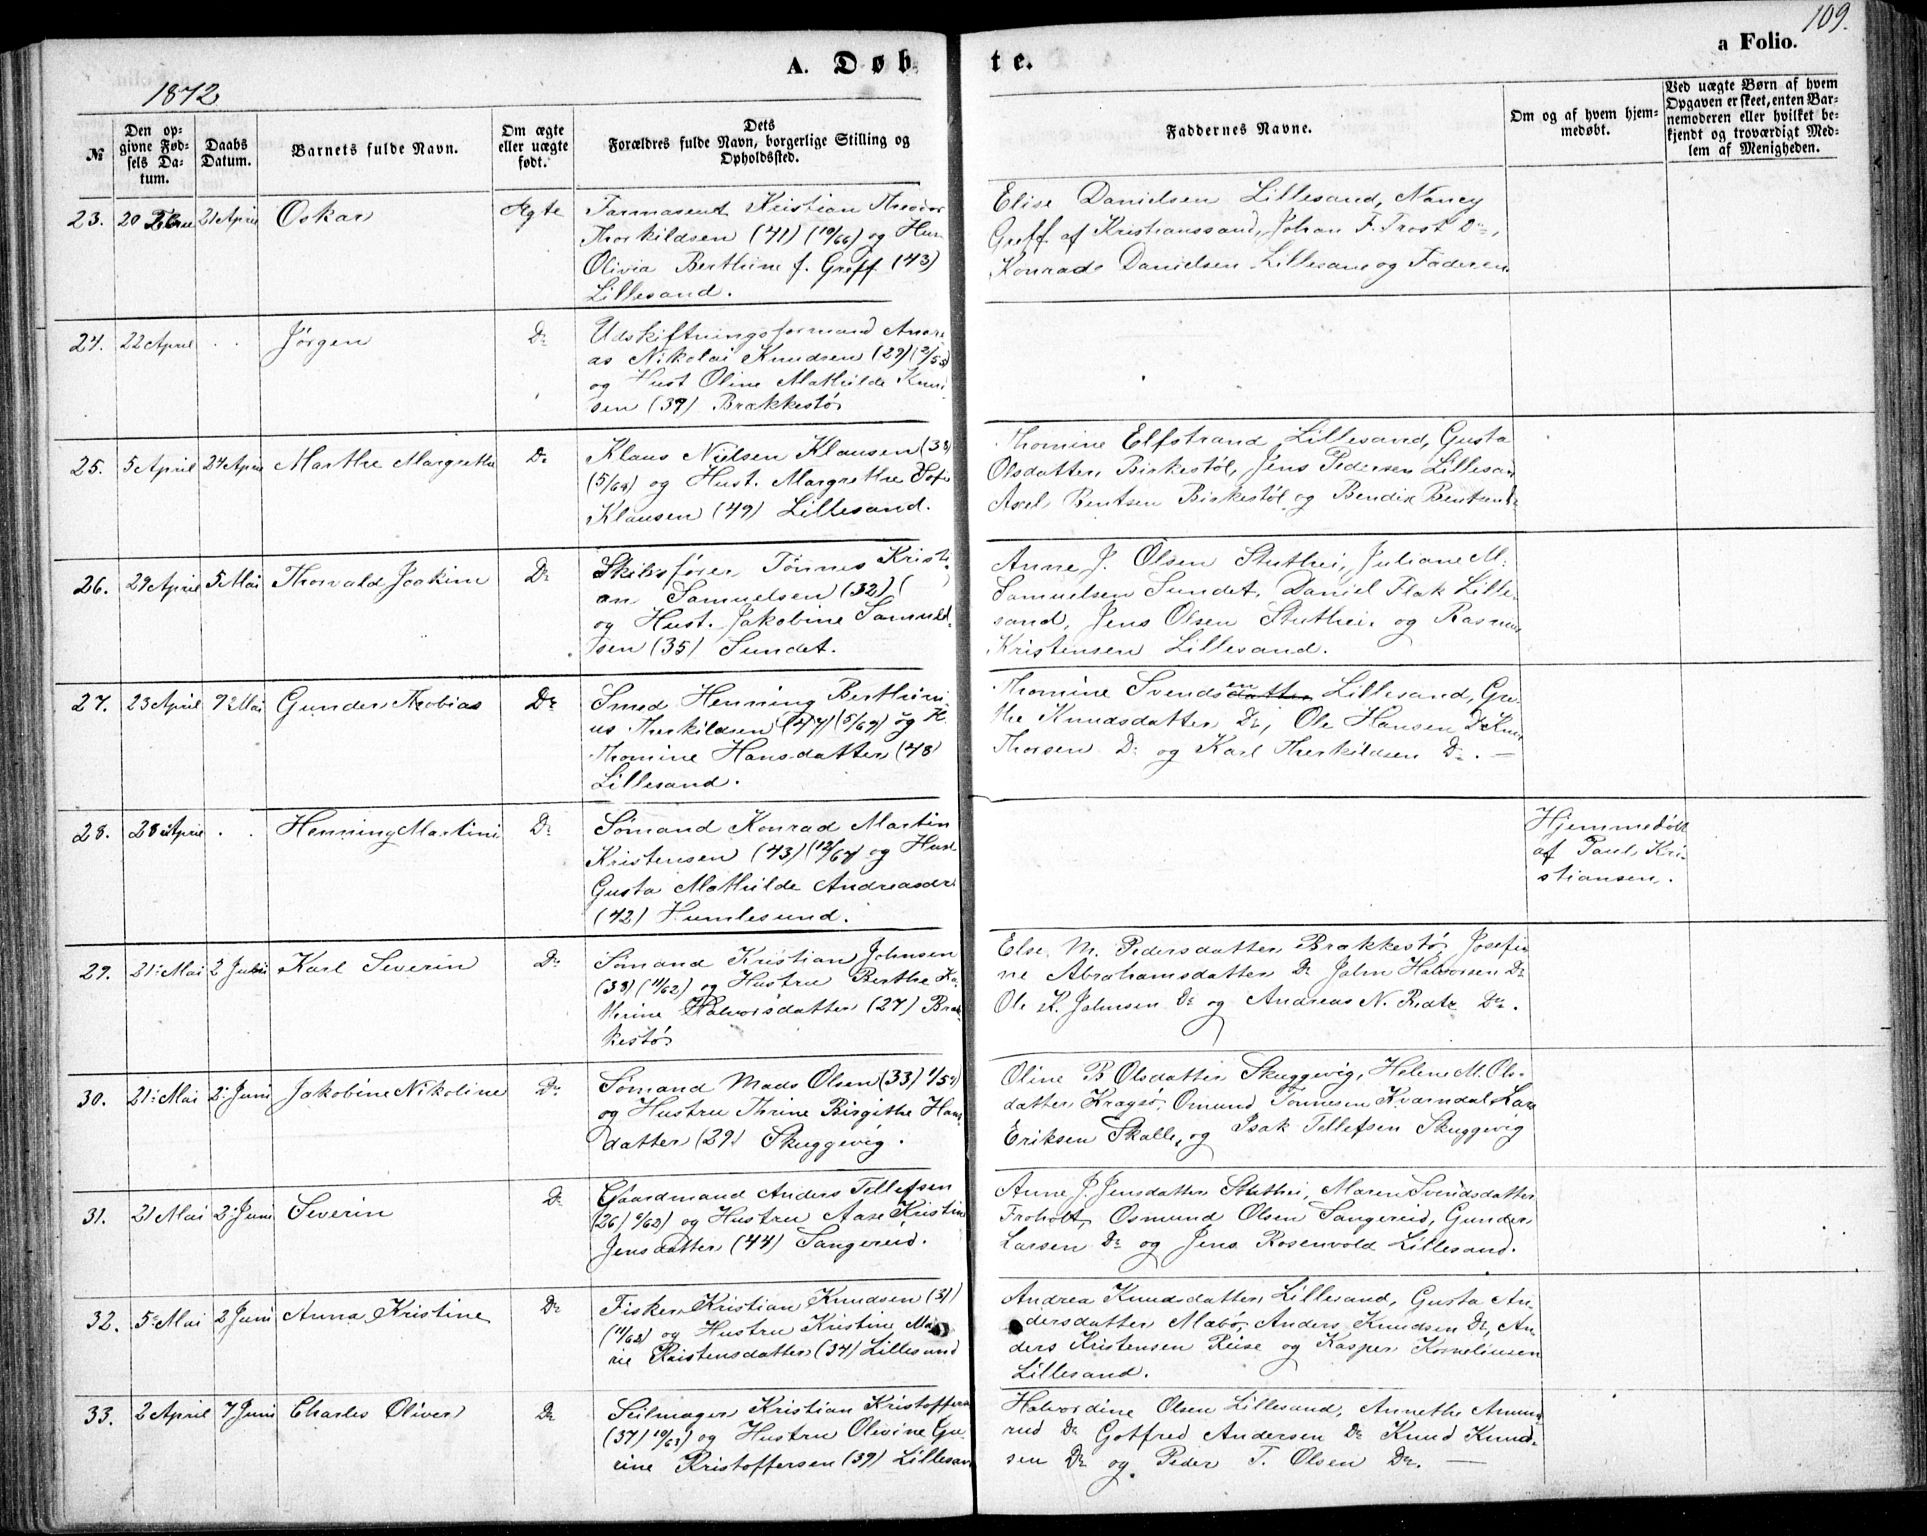 109.
A. Døb
te.
a Folio.
1872
№
Den op-
givne Fød-
sels Da-
tum.
Daabs
Datum.
Barnets fulde Navn.
Om ægte
eller uægte
født.
Dets
Forældres fulde Navn, borgerlige Stilling og
Opholdssted.
Faddernes Navne.
Om og af hvem hjem-
medøbt.
Ved uægte Børn af hvem
Opgaven er skeet, enten Bar-
nemoderen eller hvilket be-
kjendt og troværdigt Med-
lem af Menigheden.
23. 20 21 April Oskar Ægte
Kristian Theodor
Thorkildsen (41) (10/66) og Hus
Olivia Berthine f. Greff (43)
Lillesand.
Elise Danielsen Lillesand, Nancy
Greff af Kristianssand, Johan F. Frost Do,
Konrad Danielsen Lillesand og Faderen
24. 22 April . . Jørgen Do
Udskiftningsformand Andre-
as Nikolai Knudsen (29)
og Hust Oline Mathilde Knud
sen (37) Brækkestø
25. 5 April 24 April Marthe Margrethe Do
Klaus Nielsen Klausen (38)
(5/68) og Hust. Margrethe Sofie
Klausen (49) Lillesand.
Thomine Elfstrand Lillesand, Gusta
Olsdatter Birkestøl, Jens Pedersen Lillesan
Axel Bentsen Birkestøl og Bendix Bentsen Do
26. 29 April 5 Mai Thorvald Joakim Do
Skibsfører Tønnes Kristi
an Samuelsen (32) ( )
og Hust. Jakobine Samuel-
sen (35) Sundet.
Anne J. Olsen Stuthei, Juliane M.
Samuelsen Sundet, Daniel Flak Lille-
sand, Jens Olsen Stuthei og Rasmus
Kristensen Lillesand.
27. 23 April 9 Mai Gunder Thobias Do
Smed Henning Berthini-
us Therkildsen (47) (5/69) og H.
Thomine Hansdatter (48)
Lillesand.
Thomine Svendsen Lillesand, Gre-
the Knudsdatter Do, Ole Hansen Do Knu
Thorsen Do og Karl Therkildsen Do. —
28. 28 April . . Henning Martini Do
Sømand Konrad Martin
Kristensen (43) (12/67) og Hust
Gusta Mathilde Andreasdr
(42) Humlesund.
Hjemmedøbt
af Paul Kri-
stiansen.
29. 21 Mai 2 Juni Karl Severin Do
Sømand Kristian Johnsen
(33) (11/62) og Hustru Berthe Ka-
thrine Halvorsdatter (27) Bræk-
kestø
Else M. Pedersdatter Brækkestø, Josefi-
ne Abrahamsdatter Do John Halvorsen Do
Ole K. Johnsen Do og Andreas N. Do.
30. 21 Mai 2 Juni Jakobine Nikoline Do
Sømand Mads Olsen (33)
og Hustru Thrine Birgithe Hans-
datter (29) Skuggevig.
Oline B Olsdatter Skuggevig, Helene M. Ols-
datter Kragsø, Omund Tønnesen Kvarndal, Lars
Eriksen Skalle, og Isak Tellefsen Skuggevig
31. 21 Mai 2 Juni Severin Do
Gaardmand Anders Tellefsen
(26) (6/62) og Hustru Aase Kristine
Jensdatter (44) Sangereid.
Anne J. Jensdatter Stuthei, Maren Svendsdatter
Froholt, Osmund Olsen Sangereid, Gunder
Larsen Do og Jens Rosenvold Lillesand.
32. 5 Mai 2 Juni Anna Kristine Do
Fisker Kristian Knudsen (31)
(11/62) og Hustru Kristine Ma
rie Kristensdatter (34) Lillesand
Andrea Knudsdatter Lillesand, Gusta An-
dersdatter Mabø, Anders Knudsen Do, An-
ders Kristensen Reise og Kasper Korneliusen
Lillesand.
33. 2 April 7 Juni Charles Oliver Do
Seilmager Kristian Kristoffersen
(37) (10/63) og Hustru Olivine Gu-
rine Kristoffersen (39) Lillesand
Halvordine Olsen Lillesand, Annethe Amund
rud Do Gotfred Andersen Do Knud Knud-
sen Do og Peder T. Olsen Do. —